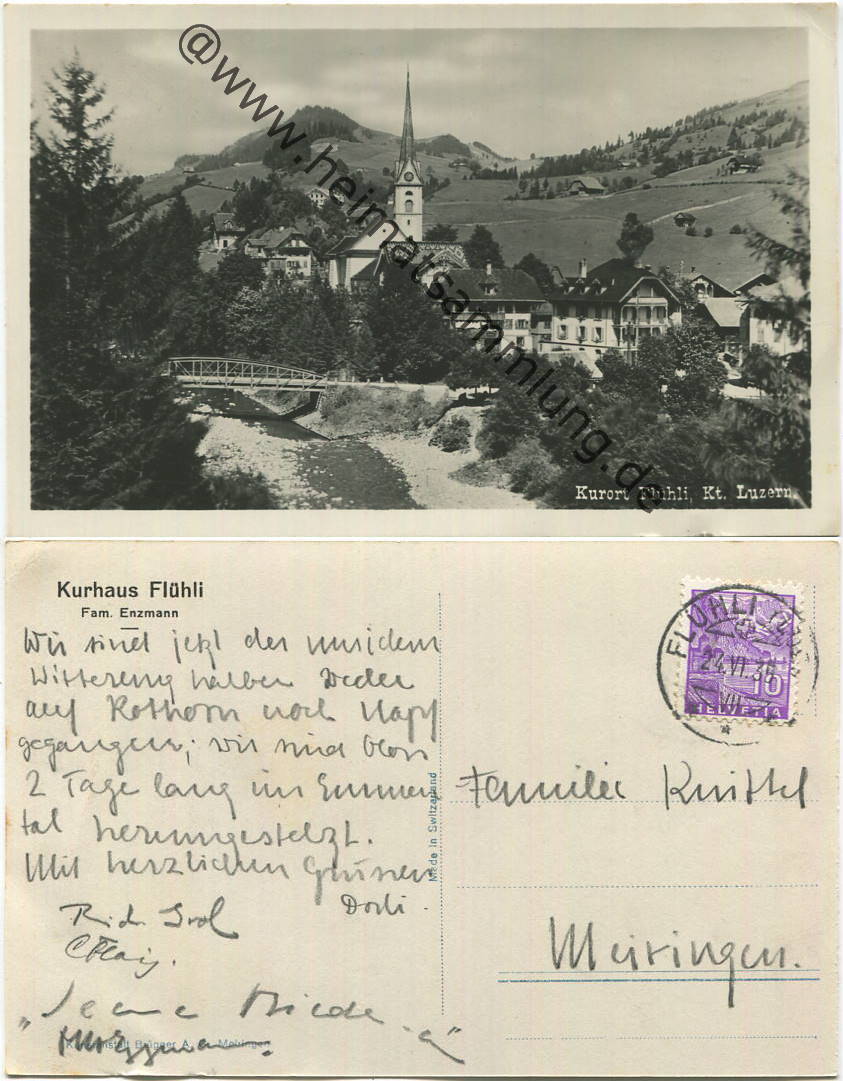 @www.heimatsammlung.de
Kurort Flühli, Kt. Luzern.
Kurhaus Flühli
Fam. Enzmann
Wir sind jetzt der unsidern
Witterung halber weder
auf Rothorn noch Napf
gegangen; wir sind blos
2 Tage lang im Emmen
tal herumgestelzt.
Mit herzlichen Grüssen
Dorli.
Made in Switzerland
FLÜHLI
24.VI.36
10
HELVETIA
Familie Knittel
Meiringen.
Kunstanstalt Brügger A. G. Meiringen